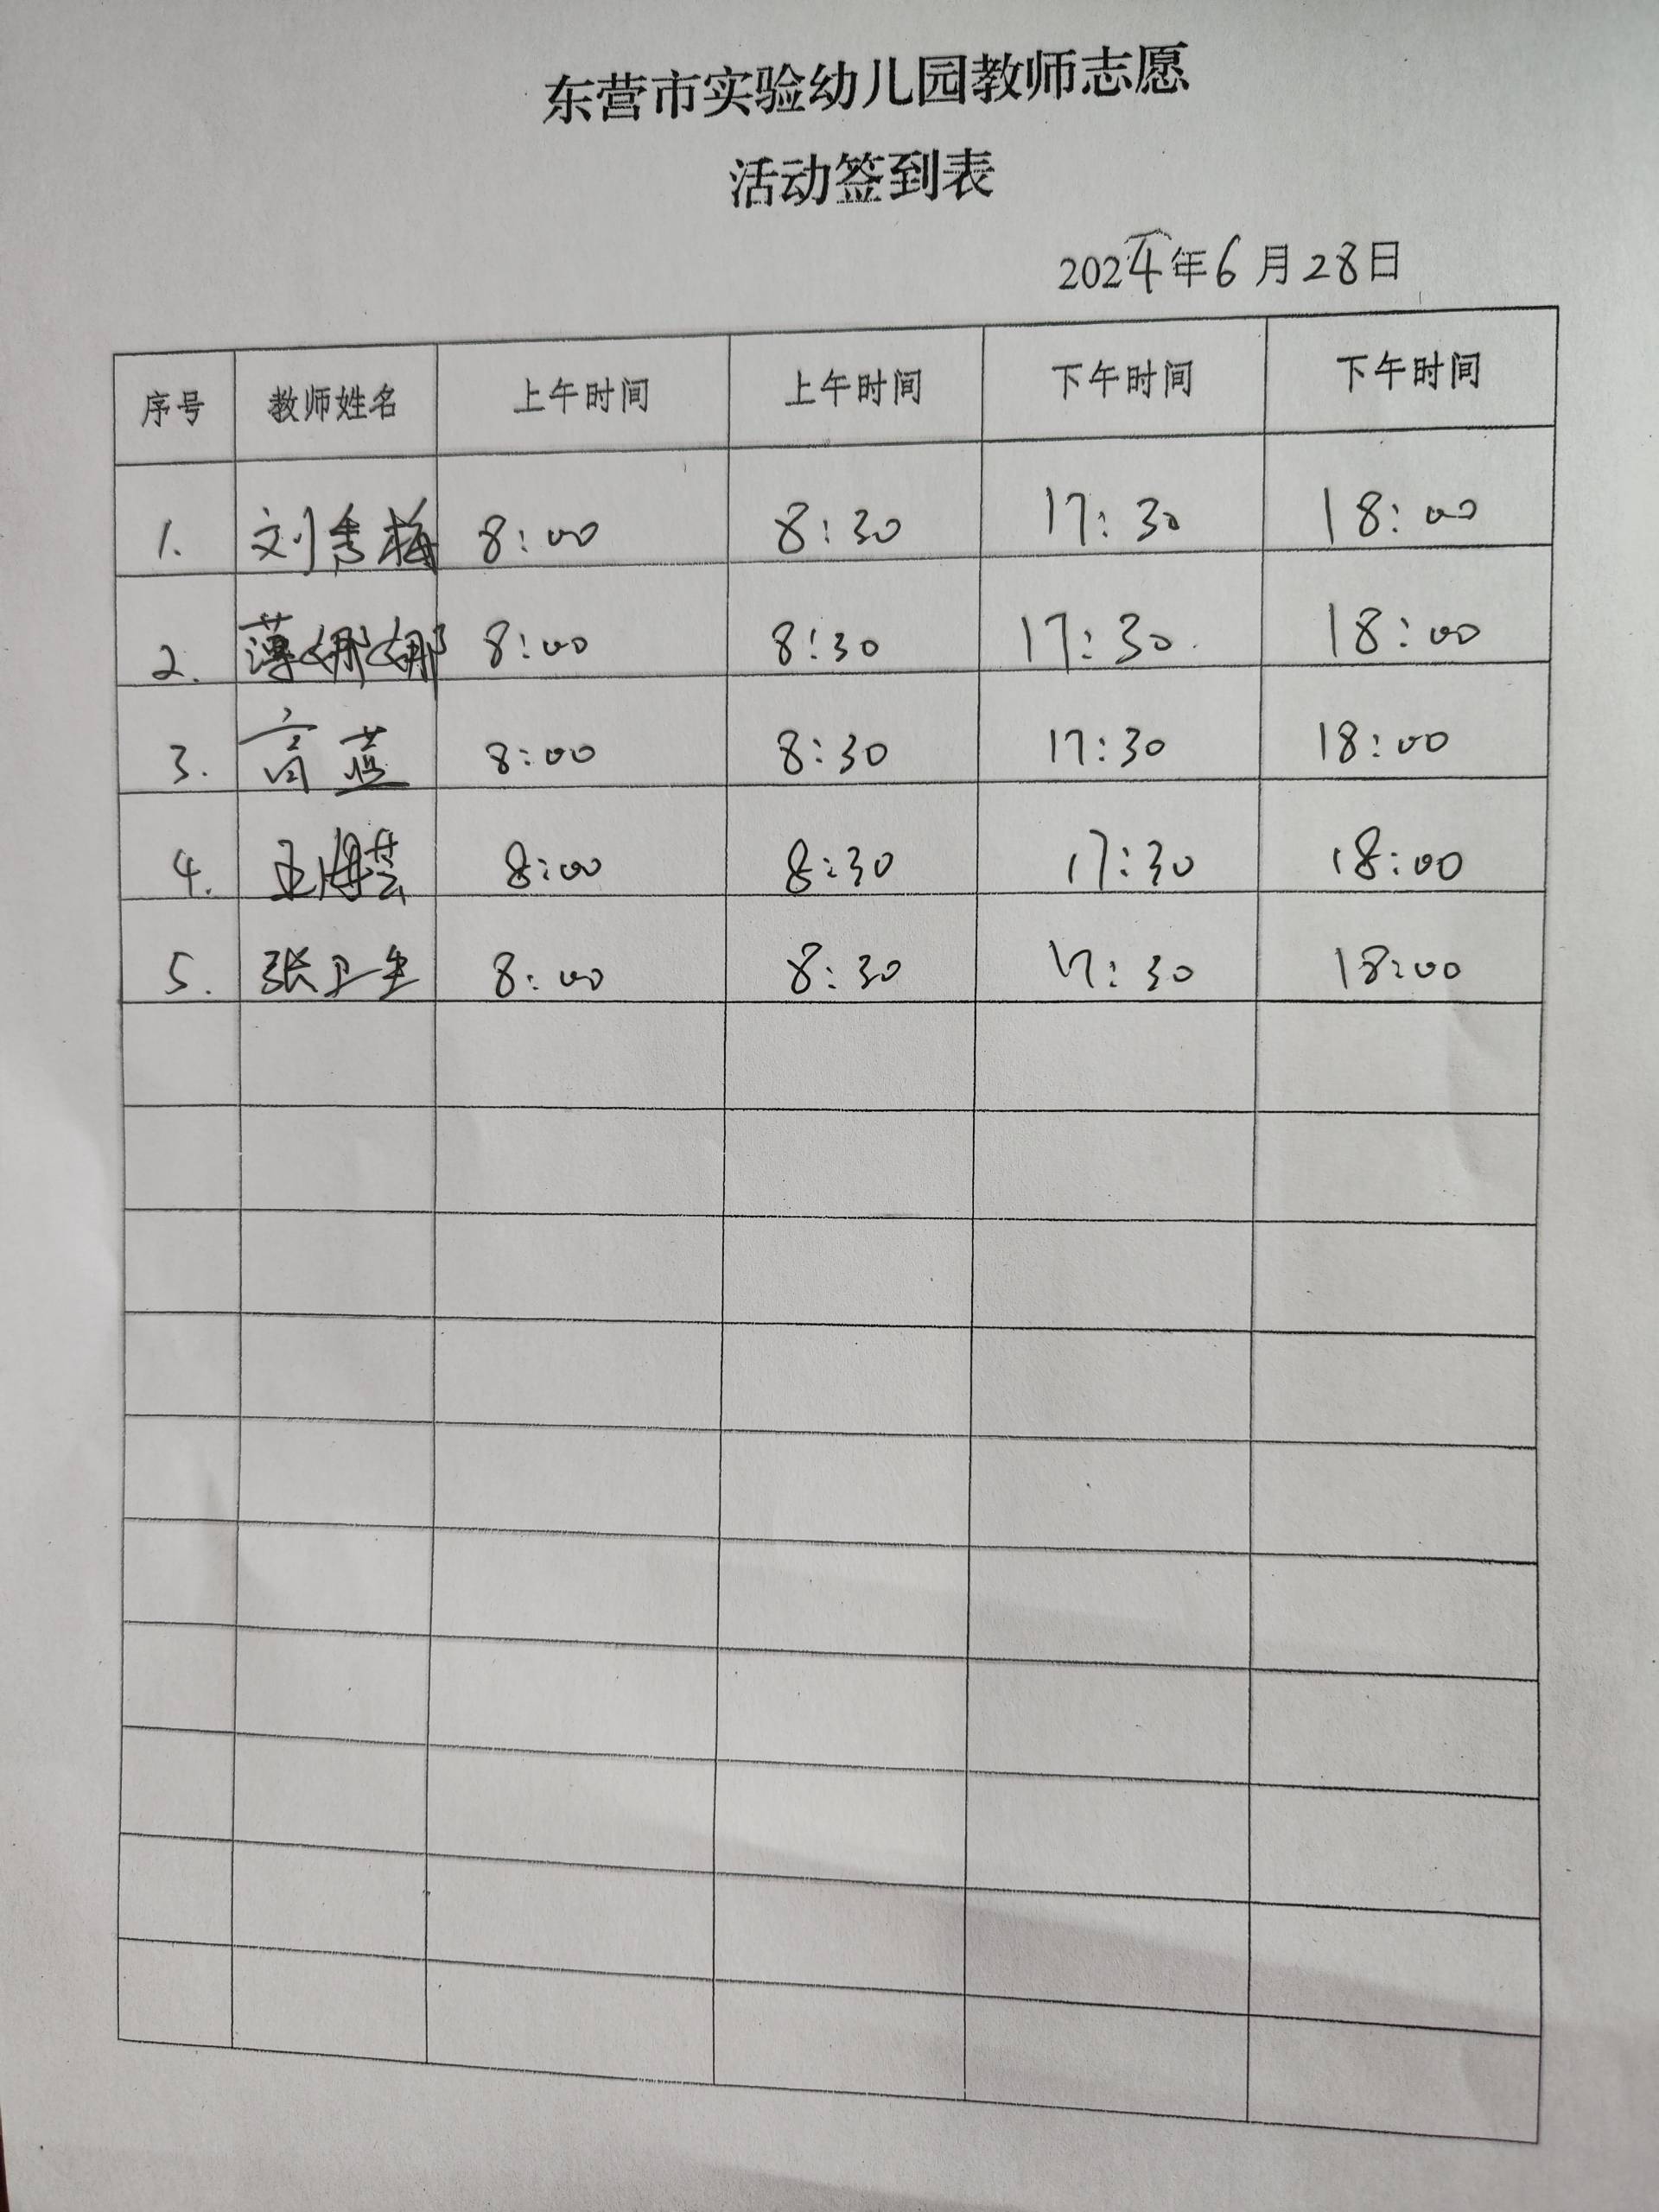 东营市实验幼儿园教师志愿
活动签到表
2024年6月28日
序号 教师姓名 上午时间 上午时间 下午时间 下午时间
1. 刘秀梅 8:00 8:30 17:30 18:00
2. 薄娜娜 8:00 8:30 17:30 18:00
3. 高蓝 8:00 8:30 17:30 18:00
4. 王海芸 8:00 8:30 17:30 18:00
5. 张卫生 8:00 8:30 17:30 18:00